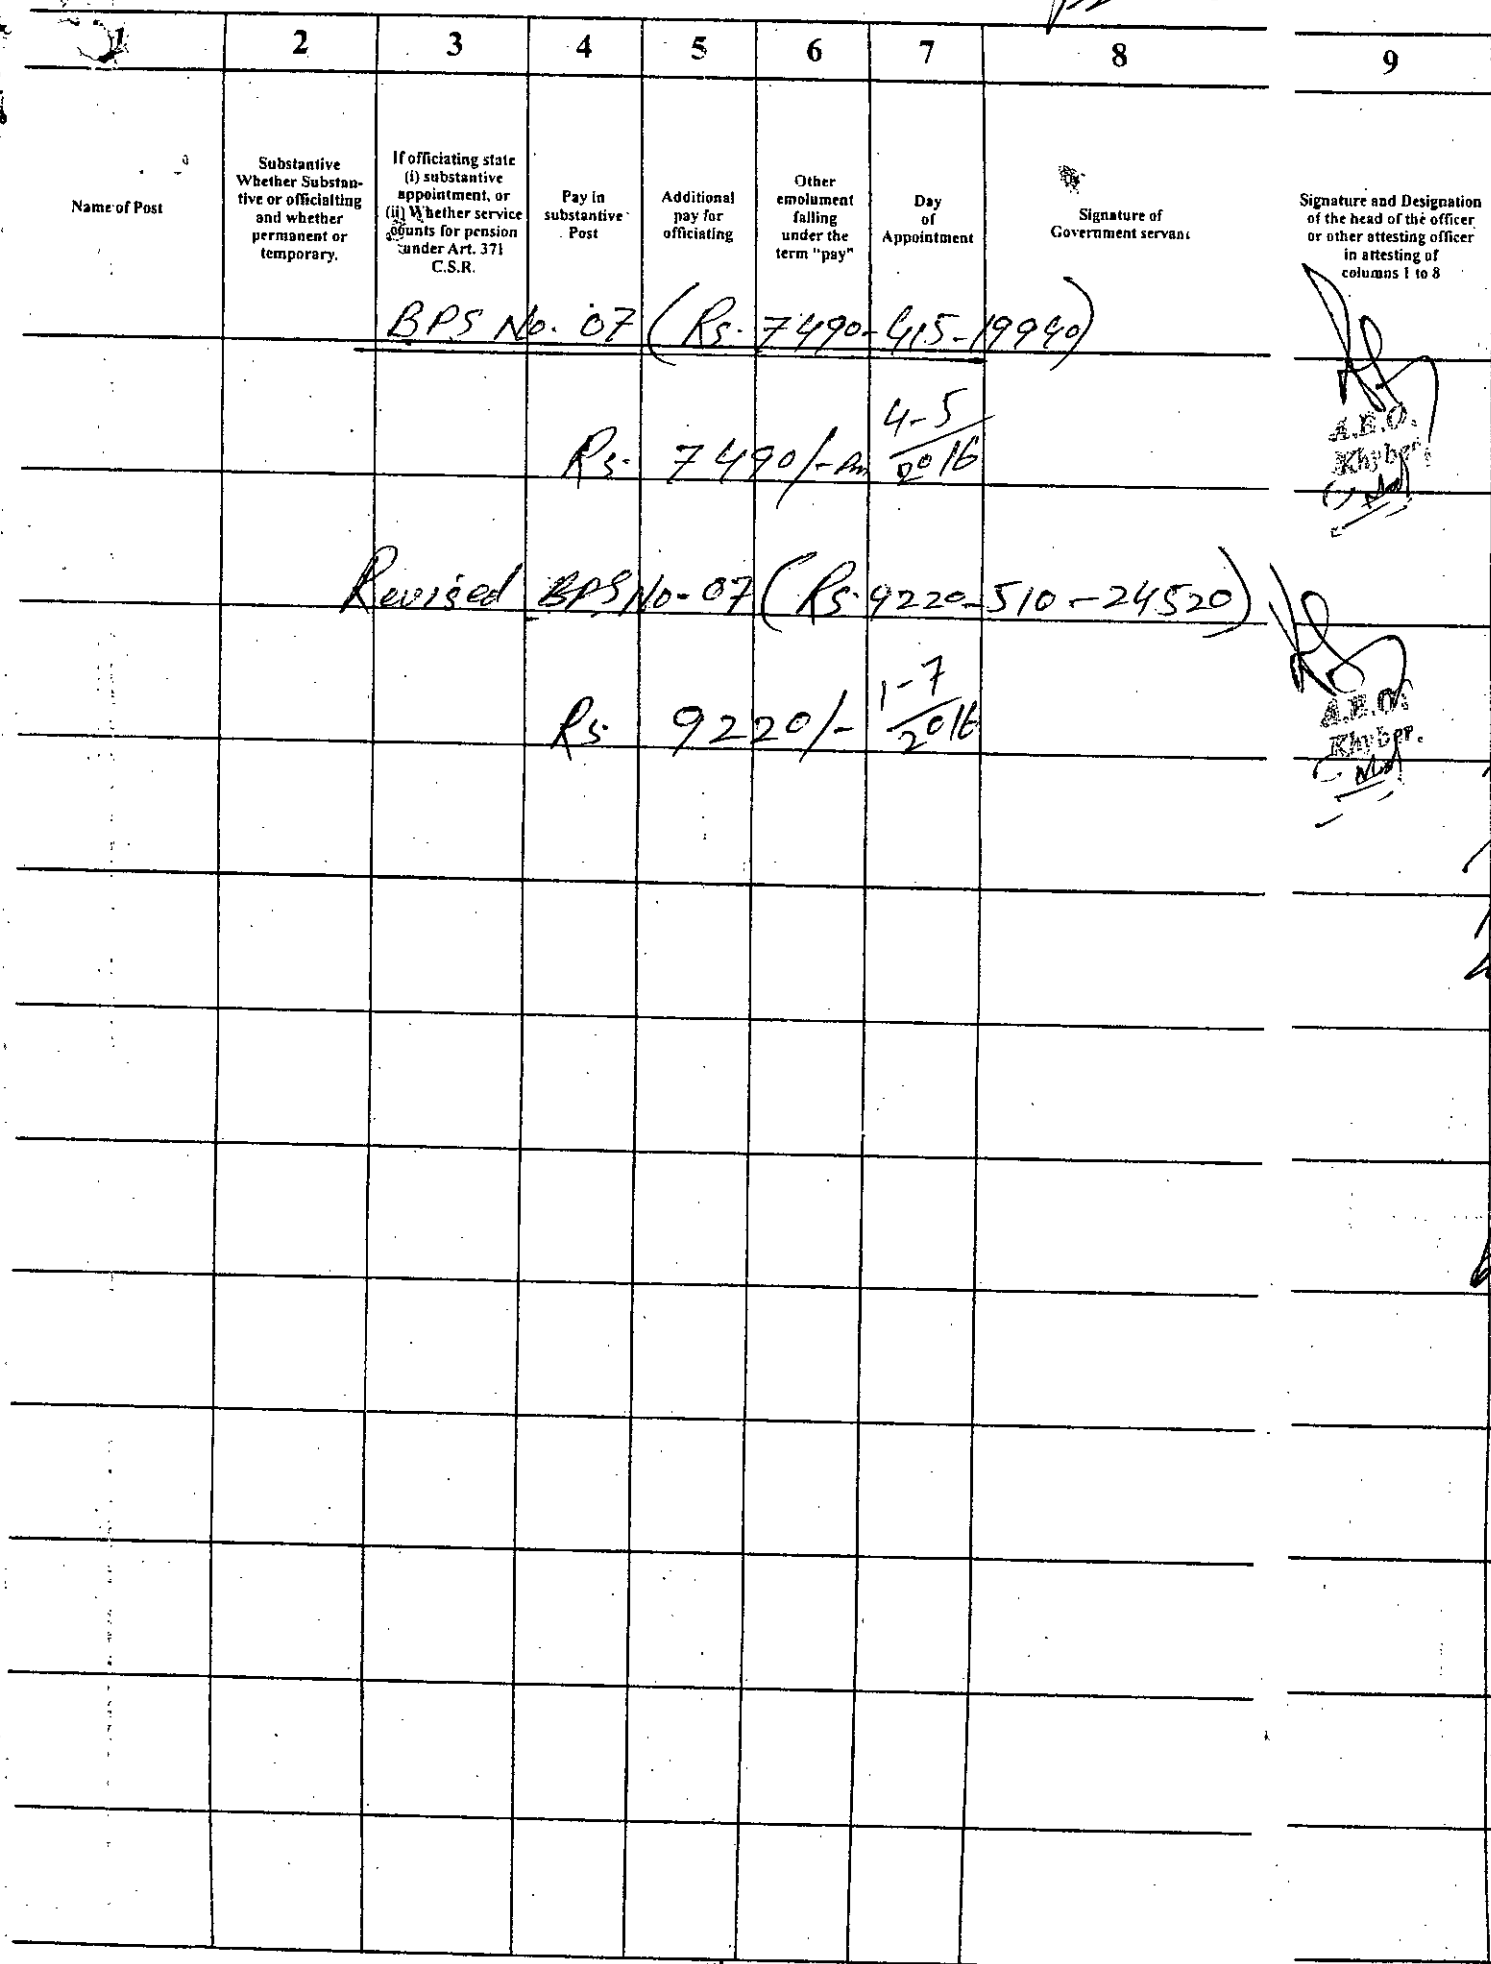 1 2 3 4 5 6 7 8 9
Name of Post
Substantive
Whether Substan-
tive or officialting
and whether
permanent or
temporary.
If officiating state
(i) substantive
appointment, or
(ii) Whether service
counts for pension
under Art. 371
C.S.R.
Pay in
substantive
Post
Additional
pay for
officiating
Other
emolument
falling
under the
term "pay"
Day
of
Appointment
Signature of
Government servant
Signature and Designation
of the head of the officer
or other attesting officer
in attesting of
columns 1 to 8
BPS No. 07 (Rs. 7490-415-19940)
Rs. 7490/- 4-5
2016
A.E.O.
Khyber
Revised BPS No-07 (Rs. 9220-510-24520)
Rs. 9220/- 1-7
2016
A.E.O.
Khyber.